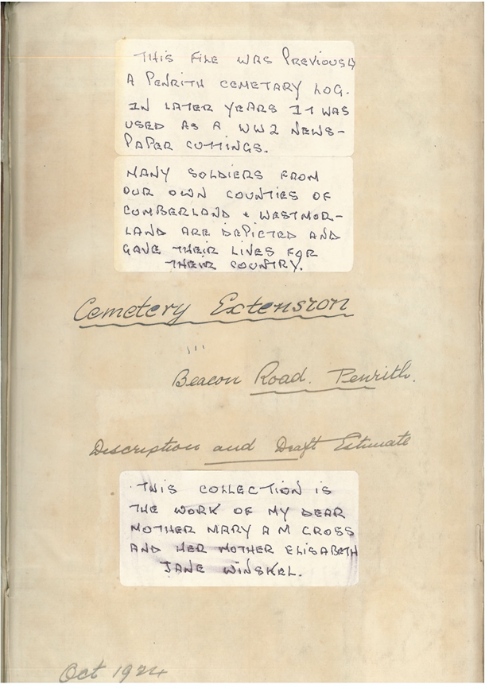 THIS FILE WAS PREVIOUSLY
A PENRITH CEMETARY LOG.
IN LATER YEARS IT WAS
USED AS A WW2 NEWS-
PAPER CUTTINGS.
MANY SOLDIERS FROM
OUR OWN COUNTIES OF
CUMBERLAND & WESTMOR-
LAND ARE DEPICTED AND
GAVE THEIR LIVES FOR
THEIR COUNTRY.
Cemetery Extension
Beacon Road. Penrith.
Description and Draft Estimate
THIS COLLECTION IS
THE WORK OF MY DEAR
MOTHER MARY A M CROSS
AND HER MOTHER ELISABETH
JANE WINSKEL.
Oct 1924